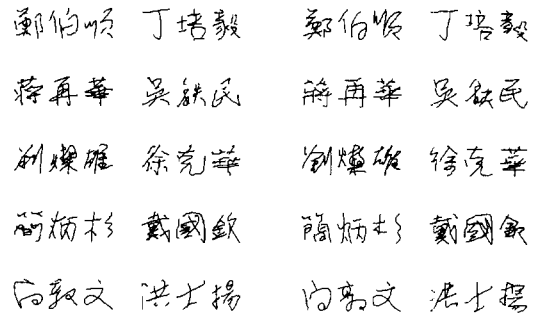 鄭伯順 丁培毅 鄭伯順 丁培毅
蔣再華 吳鉄民 蔣再華 吳鉄民
劉燦雄 徐克華 劉燦雄 徐克華
簡炳杉 戴國欽 簡炳杉 戴國欽
向敦文 洪士揚 向敦文 洪士揚